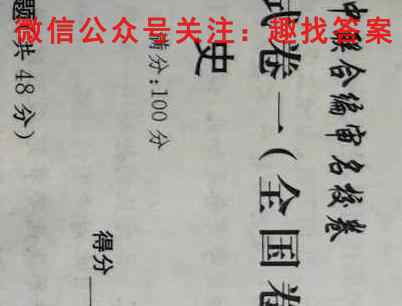 微信公众号关注：趣找答案
中联合编审名校卷
试卷一（全国卷
史
满分：100分
得分
题共48分）